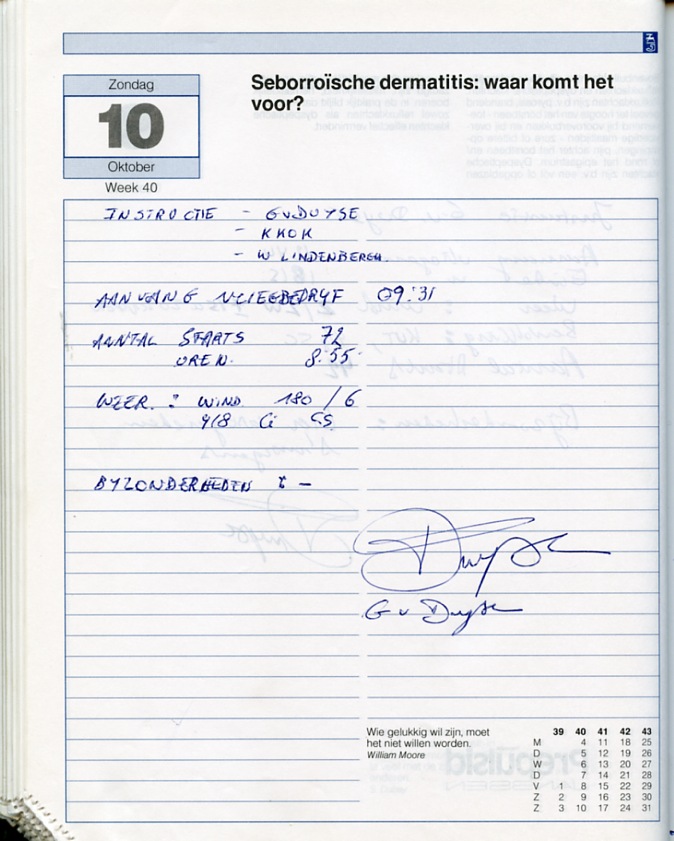 Zondag
10
Oktober
Week 40
Seborroïsche dermatitis: waar komt het
voor?
INSTRUCTIE - GVDUYSE
- K KOK
- W LINDENBERGH
AANVANG VLIEGBEDRYF 09:31
AANTAL STARTS 72
UREN. 8:55
WEER. : WIND 180 / 6
4/8 Ci CS
BYZONDERHEDEN : -
G v Duyse
Wie gelukkig wil zijn, moet
het niet willen worden.
William Moore
39 40 41 42 43
M 4 11 18 25
D 5 12 19 26
W 6 13 20 27
D 7 14 21 28
V 1 8 15 22 29
Z 2 9 16 23 30
Z 3 10 17 24 31